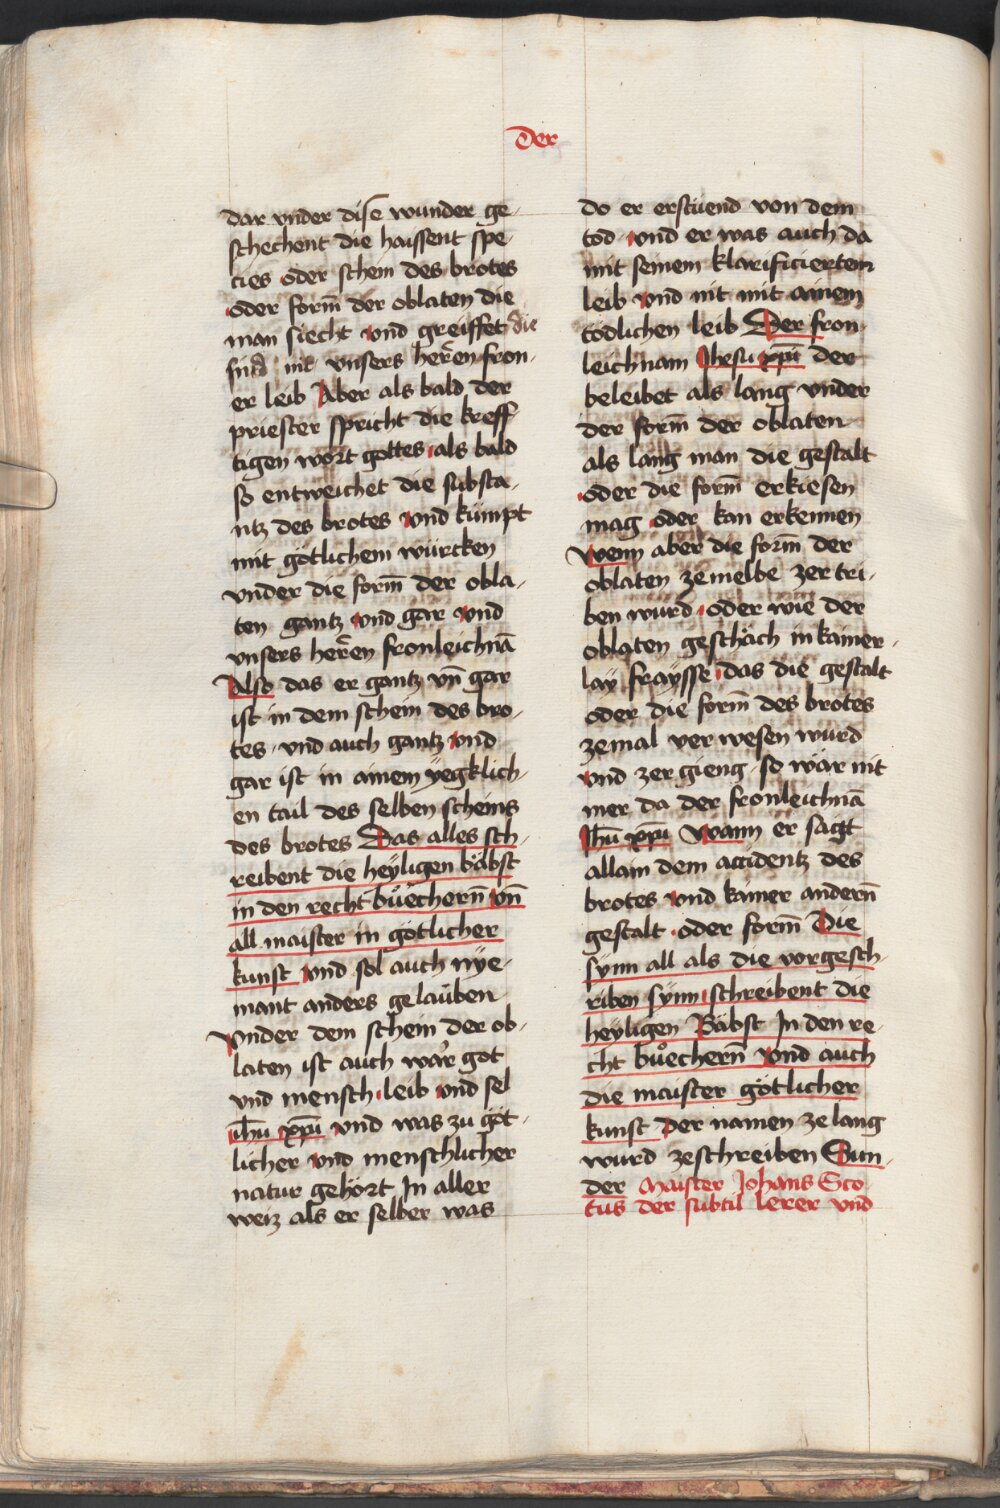 Der
dar vnder dise wunder ge-
schechent die haissent spe-
cies oder schein des brotes
oder form̄ der oblaten die
man siecht vnd greiffet die
sind nit vnsers herren fron-
er leib Aber als bald der
priester spricht die kreff-
tigen wort gottes als bald
so entweichet die substa-
ntz des brotes vnd kümpt
mit götlichem würcken
vnder die form̄ der obla-
ten gantz vnd gar vnd
vnsers herren fronleichnā
Also das er gantz vn̄ gar
ist in dem schein des bro-
tes vnd auch gantz vnd
gar ist in ainem yegklich-
en tail des selben scheins
des brotes Das alles sch-
reibent die heyligen bäbst
in den recht büechern̄ vn̄
all maister in götlicher
kunst vnd sol auch nye-
mant anders gelauben
Vnder dem schein der ob-
laten ist auch war got
vnd mensch leib vnd sel
ihū xp̄ū vnd was zu göt-
licher vnd menschlicher
natur gehört In aller
weiz als er selber was
do er erstüend von dem
tod vnd er was auch da
mit seinem klarificiertem
leib vnd nit mit ainem
tödlichen leib Der fron-
leichnam Jhesu xp̄ū der
beleibet als lang vnder
der form̄ der oblaten
als lang man die gestalt
oder die form̄ erkiesen
mag oder kan erkennen
Wenn aber die form̄ der
oblaten zemelbe zer tri-
ben wurd oder wie der
oblaten geschäch in kainer-
lay fraysse das die gestalt
oder die form̄ des brotes
zemal verwesen wurd
vnd zer gieng so wär nit
mer da der fronleichnā
Jhū xp̄ū Wann er sagt
allain dem accidentz des
brotes vnd kainer andern̄
gestalt oder form̄ Die
synn all als die vorgesch-
riben synn schreibent die
heyligen Bäbst In den re-
cht bůechern̄ vnd auch
die maister götlicher
kunst Der namen ze lang
wurd zeschreiben Sun-
der Maister Johans Sco
tus der subtil lerer vnd